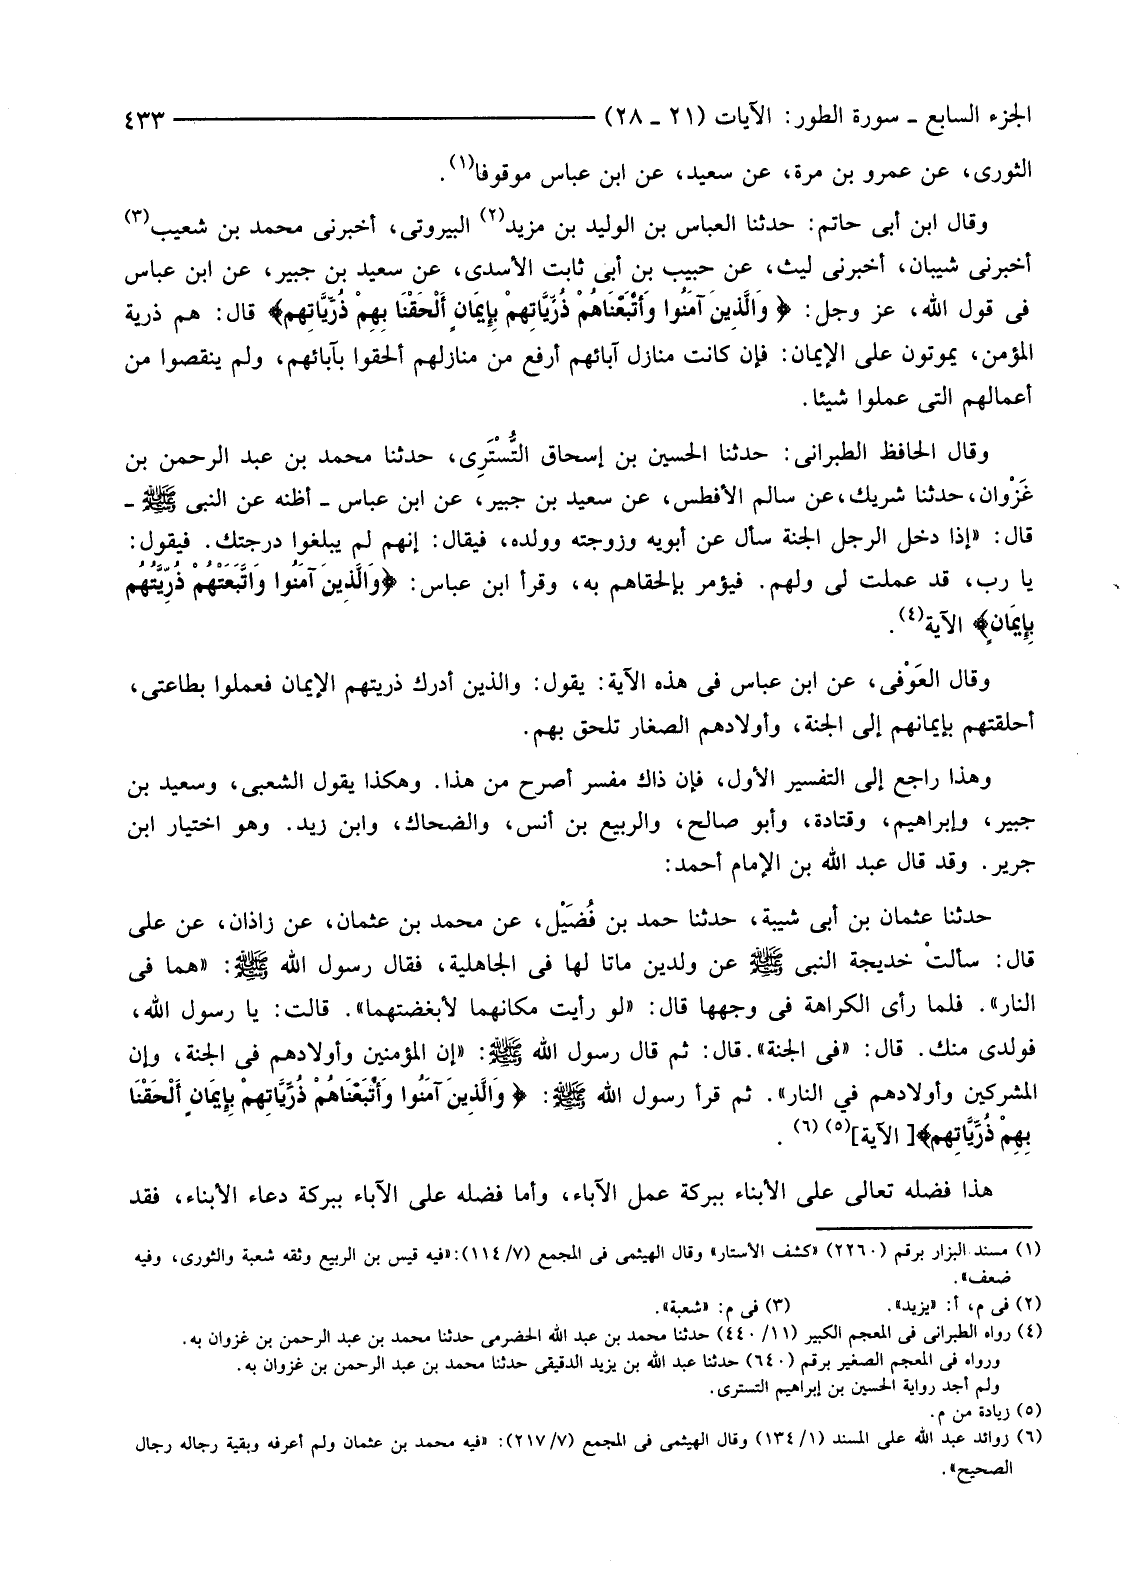 الجزء السابع ـ سورة الطور: الآيات (٢١ ـ ٢٨) ٤٣٣
الثورى، عن عمرو بن مرة، عن سعيد، عن ابن عباس موقوفا(١).
وقال ابن أبى حاتم: حدثنا العباس بن الوليد بن مزيد(٢) البيروتى، أخبرنى محمد بن شعيب(٣)
أخبرنى شيبان، أخبرنى ليث، عن حبيب بن أبي ثابت الأسدى، عن سعيد بن جبير، عن ابن عباس
فى قول الله، عز وجل: ﴿ وَالَّذِينَ آمَنُوا وَأَتْبَعْنَاهُمْ ذُرِّيَّاتِهِمْ بِإِيمَانٍ أَلْحَقْنَا بِهِمْ ذُرِّيَّاتِهِم﴾ قال: هم ذرية
المؤمن، يموتون على الإيمان: فإن كانت منازل آبائهم أرفع من منازلهم ألحقوا بآبائهم، ولم ينقصوا من
أعمالهم التى عملوا شيئا.
وقال الحافظ الطبرانى: حدثنا الحسين بن إسحاق التُّسْتَرِى، حدثنا محمد بن عبد الرحمن بن
غَزْوان، حدثنا شريك، عن سالم الأفطس، عن سعيد بن جبير، عن ابن عباس ـ أظنه عن النبى ﷺ ـ
قال: «إذا دخل الرجل الجنة سأل عن أبويه وزوجته وولده، فيقال: إنهم لم يبلغوا درجتك. فيقول:
يا رب، قد عملت لى ولهم. فيؤمر بإلحاقهم به، وقرأ ابن عباس: ﴿وَالَّذِينَ آمَنُوا وَاتَّبَعَتْهُمْ ذُرِّيَّتُهُم
بِإِيمَانٍ﴾ الآية(٤).
وقال العَوْفى، عن ابن عباس فى هذه الآية: يقول: والذين أدرك ذريتهم الإيمان فعملوا بطاعتى،
أحلقتهم بإيمانهم إلى الجنة، وأولادهم الصغار تلحق بهم.
وهذا راجع إلى التفسير الأول، فإن ذاك مفسر أصرح من هذا. وهكذا يقول الشعبى، وسعيد بن
جبير، وإبراهيم، وقتادة، وأبو صالح، والربيع بن أنس، والضحاك، وابن زيد. وهو اختيار ابن
جرير. وقد قال عبد الله بن الإمام أحمد:
حدثنا عثمان بن أبى شيبة، حدثنا حمد بن فُضَيْل، عن محمد بن عثمان، عن زاذان، عن على
قال: سألتْ خديجة النبى ﷺ عن ولدين ماتا لها فى الجاهلية، فقال رسول الله ﷺ: «هما فى
النار». فلما رأى الكراهة فى وجهها قال: «لو رأيت مكانهما لأبغضتهما». قالت: يا رسول الله،
فولدى منك. قال: «فى الجنة». قال: ثم قال رسول الله ﷺ: «إن المؤمنين وأولادهم فى الجنة، وإن
المشركين وأولادهم في النار». ثم قرأ رسول الله ﷺ: ﴿ وَالَّذِينَ آمَنُوا وَأَتْبَعْنَاهُمْ ذُرِّيَّاتِهِمْ بِإِيمَانٍ أَلْحَقْنَا
بِهِمْ ذُرِّيَّاتِهِم﴾[ الآية](٥) (٦) .
هذا فضله تعالى على الأبناء ببركة عمل الآباء، وأما فضله على الآباء ببركة دعاء الأبناء، فقد
(١) مسند البزار برقم (٢٢٦٠) «كشف الأستار» وقال الهيثمى فى المجمع (١١٤/٧):«فيه قيس بن الربيع وثقه شعبة والثورى، وفيه
ضعف».
(٢) فى م، أ: «يزيد». (٣) فى م: «شعبة».
(٤) رواه الطبرانى فى المعجم الكبير (٤٤٠/١١) حدثنا محمد بن عبد الله الحضرمى حدثنا محمد بن عبد الرحمن بن غزوان به.
ورواه فى المعجم الصغير برقم (٦٤٠) حدثنا عبد الله بن يزيد الدقيقى حدثنا محمد بن عبد الرحمن بن غزوان به.
ولم أجد رواية الحسين بن إبراهيم التسترى.
(٥) زيادة من م.
(٦) زوائد عبد الله على المسند (١٣٤/١) وقال الهيثمى فى المجمع (٢١٧/٧): «فيه محمد بن عثمان ولم أعرفه وبقية رجاله رجال
الصحيح».